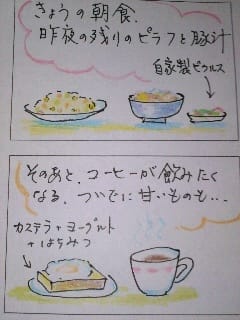 きょうの朝食.
昨夜の残りのピラフと豚汁
自家製ピクルス
そのあと、コーヒーが飲みたく
なる. ついでに甘いものも…
カステラ+ヨーグルト
+はちみつ